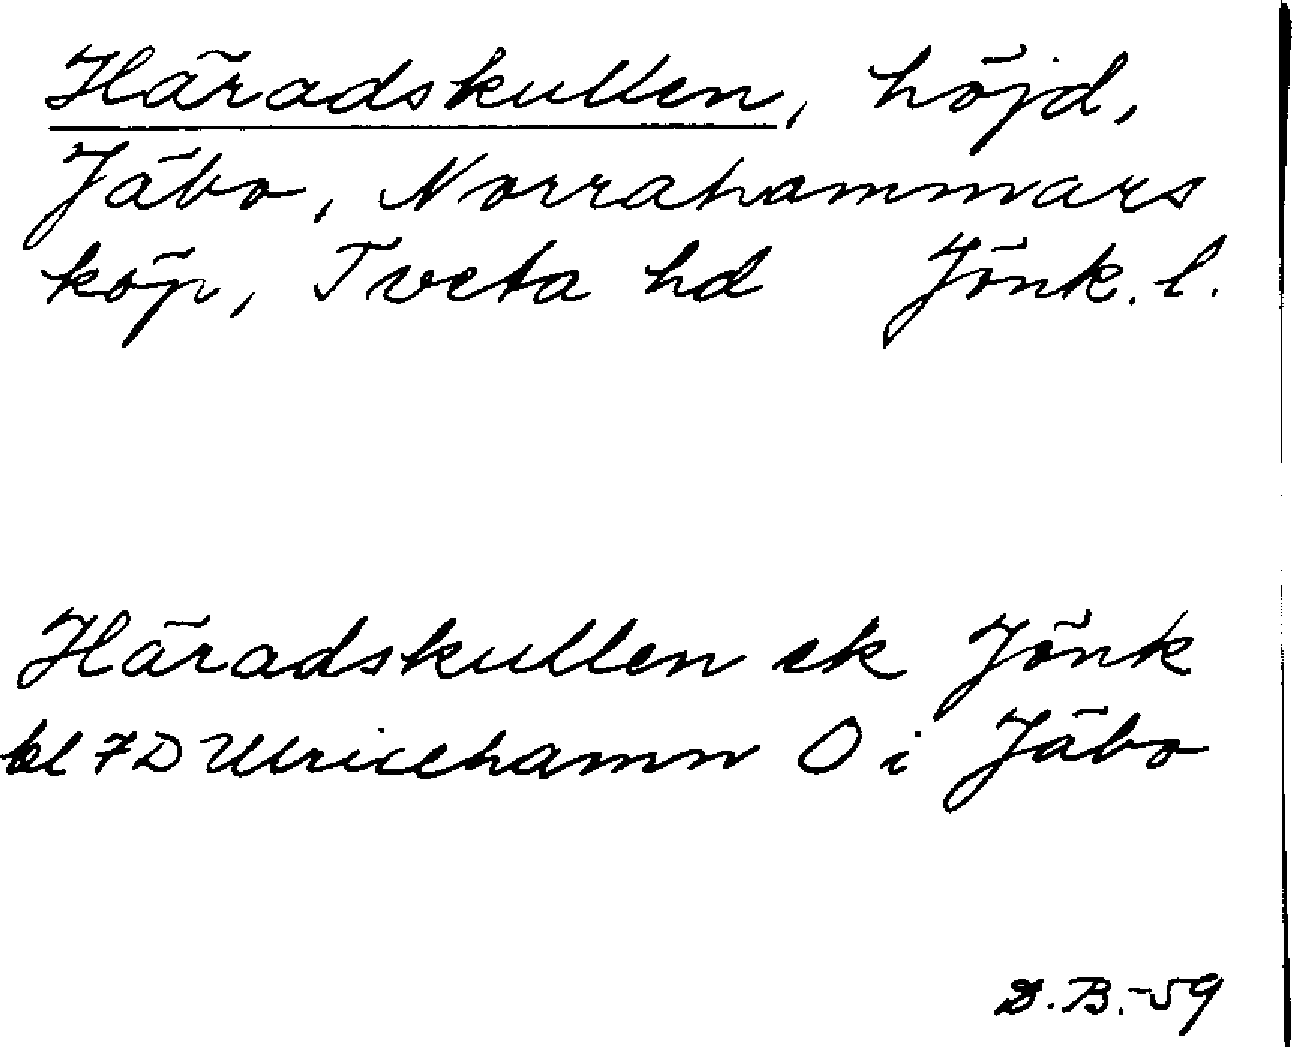 Häradskullen, höjd,
Jäbo, Norrahammars
köp, Tveta hd Jönk. l.
Häradskullen ek Jönk
bl 7D Ulricehamn O i Jäbo
D.B.-59